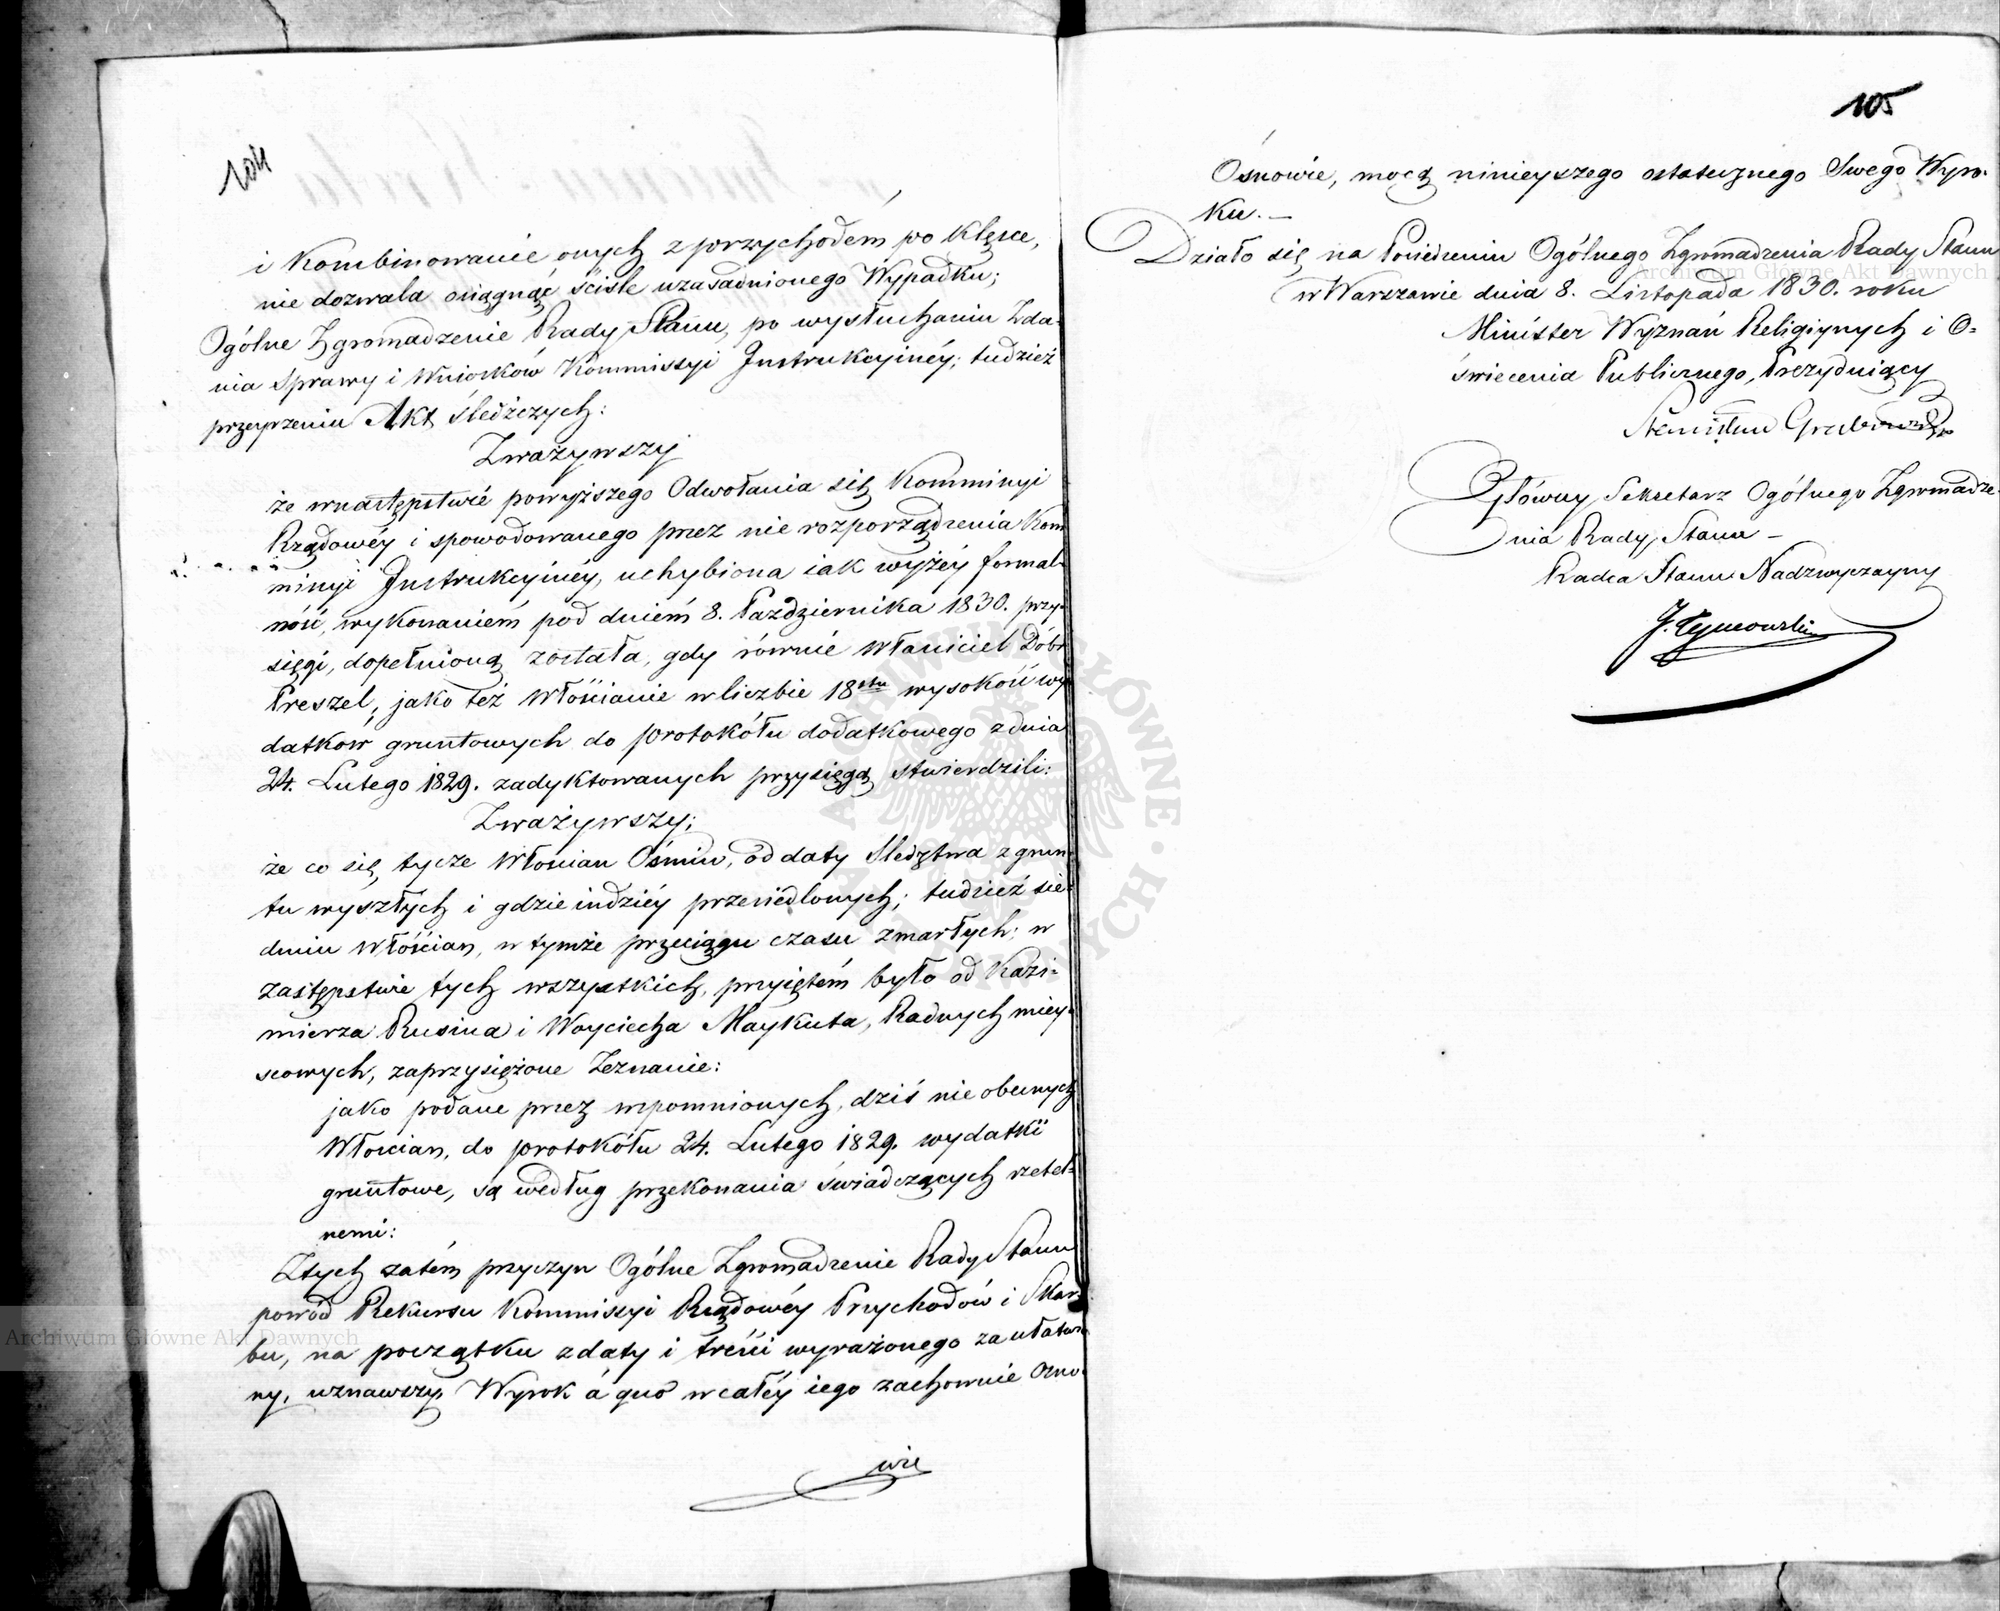 104
i Kombinowanie onych z przychodem po klęsce,
nie dozwala osiągnąć ściśle uzasadnionego Wypadku;
Ogólne Zgromadzenie Rady Stanu, po wysłuchaniu Zda-
nia Sprawy i Wniosków Kommissyi Instrukcyinéy; tudzież
przeyrzeniu Akt śledczych:
Zważywszy
że wnastępstwie powyższego Odwołania się Kommissyi
Rządowéy i spowodowanego przez nie rozporządzenia Kom
missyi Instrukcyinéy, uchybiona iak wyżéy formal-
ność, wykonaniem pod dniem 8. Października 1830. przy-
sięgi, dopełnioną została, gdy równie Właściciel Dóbr
Preszel, jako też Włościanie wliczbie 18stu wysokość wy-
datków gruntowych do protokółu dodatkowego zdnia
24. Lutego 1829. zadyktowanych przysięgą stwierdzili:
Zważywszy;
że co się tycze Włościan Ośmiu, od daty Sledztwa z grun-
tu wyszłych i gdzieindziéy przesiedlonych; tudzież sie-
dmiu Włościan, w tymże przeciągu czasu zmarłych; w
zastępstwie tych wszystkich, przyiętem było od Kazi-
mierza Rusina i Woyciecha Maykuta, Radnych miey-
scowych, zaprzysiężone Zeznanie:
jako podane przez wspomnionych, dziś nieobecnych
Włościan, do protokółu 24. Lutego 1829. wydatki
gruntowe, są według przekonania świadczących rzetel-
nemi:
Ztych zatém przyczyn Ogólne Zgromadzenie Rady Stanu
powód Rekursu Kommissyi Rządowéy Przychodów i Skar-
bu, na początku zdaty i treści wyrażonego za ułatwio
ny, uznawszy Wyrok à quo wcałéy iego zachowuie Osno-
wie
105
Osnowie, mocą ninieyszego ostatecznego Swego Wyro-
ku. —
Działo się na Posiedzeniu Ogólnego Zgromadzenia Rady Stanu
w Warszawie dnia 8. Listopada 1830. roku
Minister Wyznań Religiynych i O-
świecenia Publicznego, Prezyduiący
Stanisław Grabowski
Główny Sekretarz Ogólnego Zgromadze-
nia Rady Stanu —
Radca Stanu Nadzwyczayny
J. Tymowski
Archiwum Główne Akt Dawnych
Archiwum Główne Akt Dawnych